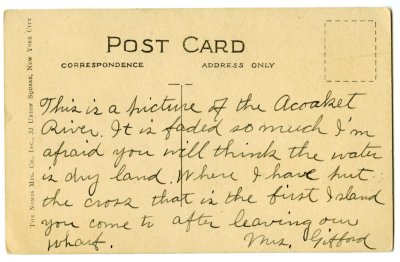 POST CARD
CORRESPONDENCE ADDRESS ONLY
This is a picture of the Acoaket
River. It is faded so much I'm
afraid you will think the water
is dry land. Where I have put
the cross that is the first Island
you come to after leaving our
wharf. Mrs. Gifford
THE NOMIS MFG. CO., INC., 33 UNION SQUARE, NEW YORK CITY